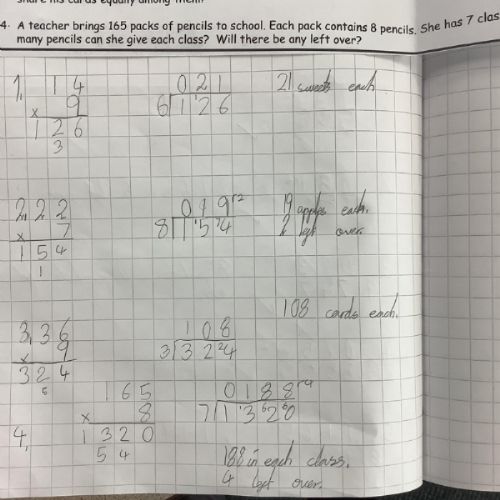 4. A teacher brings 165 packs of pencils to school. Each pack contains 8 pencils. She has 7
many pencils can she give each class? Will there be any left over?
1, 14
x 9
126
3
021
6 126
21 sweets each
2, 22
x 7
154
1
019 r2
8 1 15 74
19 apples each.
2 left over
3, 36
x 9
324
5
108
3 3 2 24
108 cards each.
4, 165
x 8
1320
54
0188 r4
7 1 13 62 60
188 in each class.
4 left over.